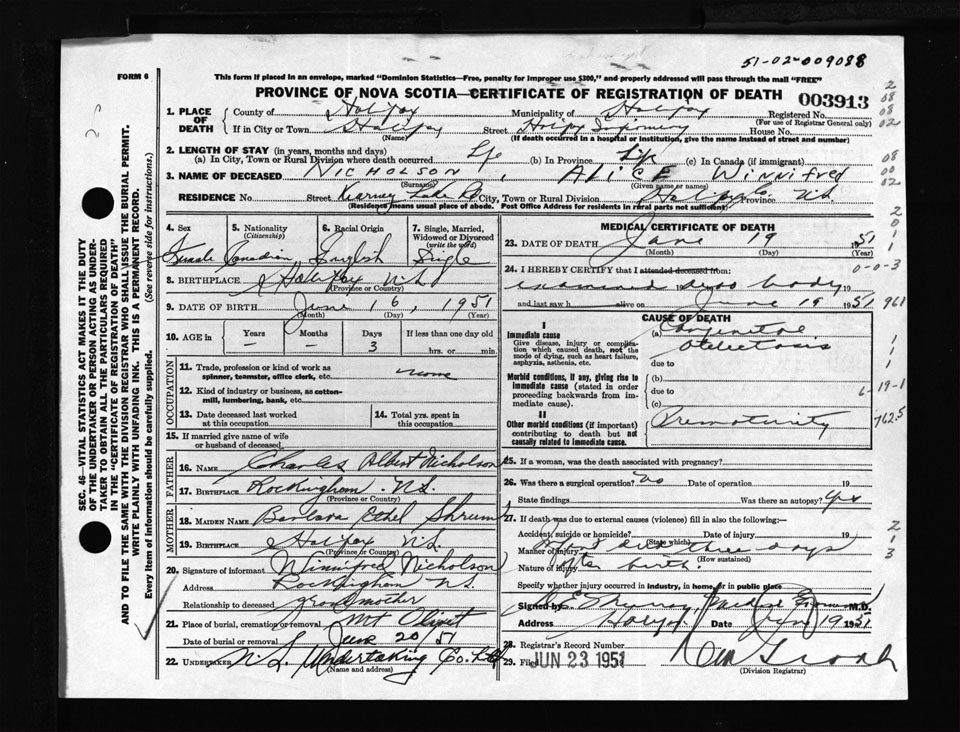 51-02-009088
FORM 6
This form if placed in an envelope, marked "Dominion Statistics—Free, penalty for improper use $300," and properly addressed will pass through the mail "FREE"
PROVINCE OF NOVA SCOTIA—CERTIFICATE OF REGISTRATION OF DEATH
003913
1. PLACE OF DEATH
County of Halifax
Municipality of Halifax
Registered No.
(For use of Registrar General only)
If in City or Town Halifax
(Name)
Street Halifax Infirmary House No.
(If death occurred in a hospital or institution, give the name instead of street and number)
2. LENGTH OF STAY (in years, months and days)
(a) In City, Town or Rural Division where death occurred Life (b) In Province Life (c) In Canada (if immigrant)
3. NAME OF DECEASED NICHOLSON, ALICE Winnifred
(Surname) (Given name or names)
RESIDENCE No. Street Kearney Lake Rd City, Town or Rural Division Halifax Co. Province N.S.
(Residence means usual place of abode. Post Office Address for residents in rural parts not sufficient)
4. Sex
Female
5. Nationality
(Citizenship)
Canadian
6. Racial Origin
English
7. Single, Married, Widowed or Divorced
(write the word)
Single
8. BIRTHPLACE Halifax N.S.
(Province or Country)
9. DATE OF BIRTH June 16, 1951
(Month) (Day) (Year)
10. AGE in
Years Months Days If less than one day old
— — 3 hrs. or min.
OCCUPATION
11. Trade, profession or kind of work as spinner, teamster, office clerk, etc. none
12. Kind of industry or business, as cotton-mill, lumbering, bank, etc.
13. Date deceased last worked at this occupation
14. Total yrs. spent in this occupation
15. If married give name of wife or husband of deceased
FATHER
16. NAME Charles Albert Nicholson
17. BIRTHPLACE Rockingham N.S.
(Province or Country)
MOTHER
18. MAIDEN NAME Barbara Ethel Shrum
19. BIRTHPLACE Halifax N.S.
(Province or Country)
20. Signature of informant Winnifred Nicholson
Address Rockingham N.S.
Relationship to deceased grandmother
21. Place of burial, cremation or removal Mt Olivet
Date of burial or removal June 20/51
22. UNDERTAKER N.S. Undertaking Co. Ltd
(Name and address)
MEDICAL CERTIFICATE OF DEATH
23. DATE OF DEATH June 19 1951
(Month) (Day) (Year)
24. I HEREBY CERTIFY that I attended deceased from:
examined 19 body
and last saw h alive on June 19 1951
CAUSE OF DEATH
I
Immediate cause
Give disease, injury or complication which caused death, not the mode of dying, such as heart failure, asphyxia, asthenia, etc.
(a) Congenital
Atelectasis
due to
Morbid conditions, if any, giving rise to immediate cause (stated in order proceeding backwards from immediate cause).
(b)
due to
(c)
II
Other morbid conditions (if important) contributing to death but not causally related to immediate cause.
Prematurity
762.5
25. If a woman, was the death associated with pregnancy?
26. Was there a surgical operation? no Date of operation 19
State findings Was there an autopsy? yes
27. If death was due to external causes (violence) fill in also the following:—
Accident, suicide or homicide? Date of injury 19
(State which)
Manner of injury three days
(How sustained)
Nature of injury after birth.
Specify whether injury occurred in industry, in home, or in public place
Signed by M.D.
Address Halifax Date June 19 1951
28. Registrar's Record Number
29. Filed JUN 23 1951
(Division Registrar)
SEC. 46—VITAL STATISTICS ACT MAKES IT THE DUTY
OF THE UNDERTAKER OR PERSON ACTING AS UNDER-
TAKER TO OBTAIN ALL THE PARTICULARS REQUIRED
IN THE "CERTIFICATE OF REGISTRATION OF DEATH"
AND TO FILE THE SAME WITH THE DIVISION REGISTRAR WHO SHALL ISSUE THE BURIAL PERMIT.
WRITE PLAINLY WITH UNFADING INK. THIS IS A PERMANENT RECORD.
Every item of information should be carefully supplied. (See reverse side for instructions.)